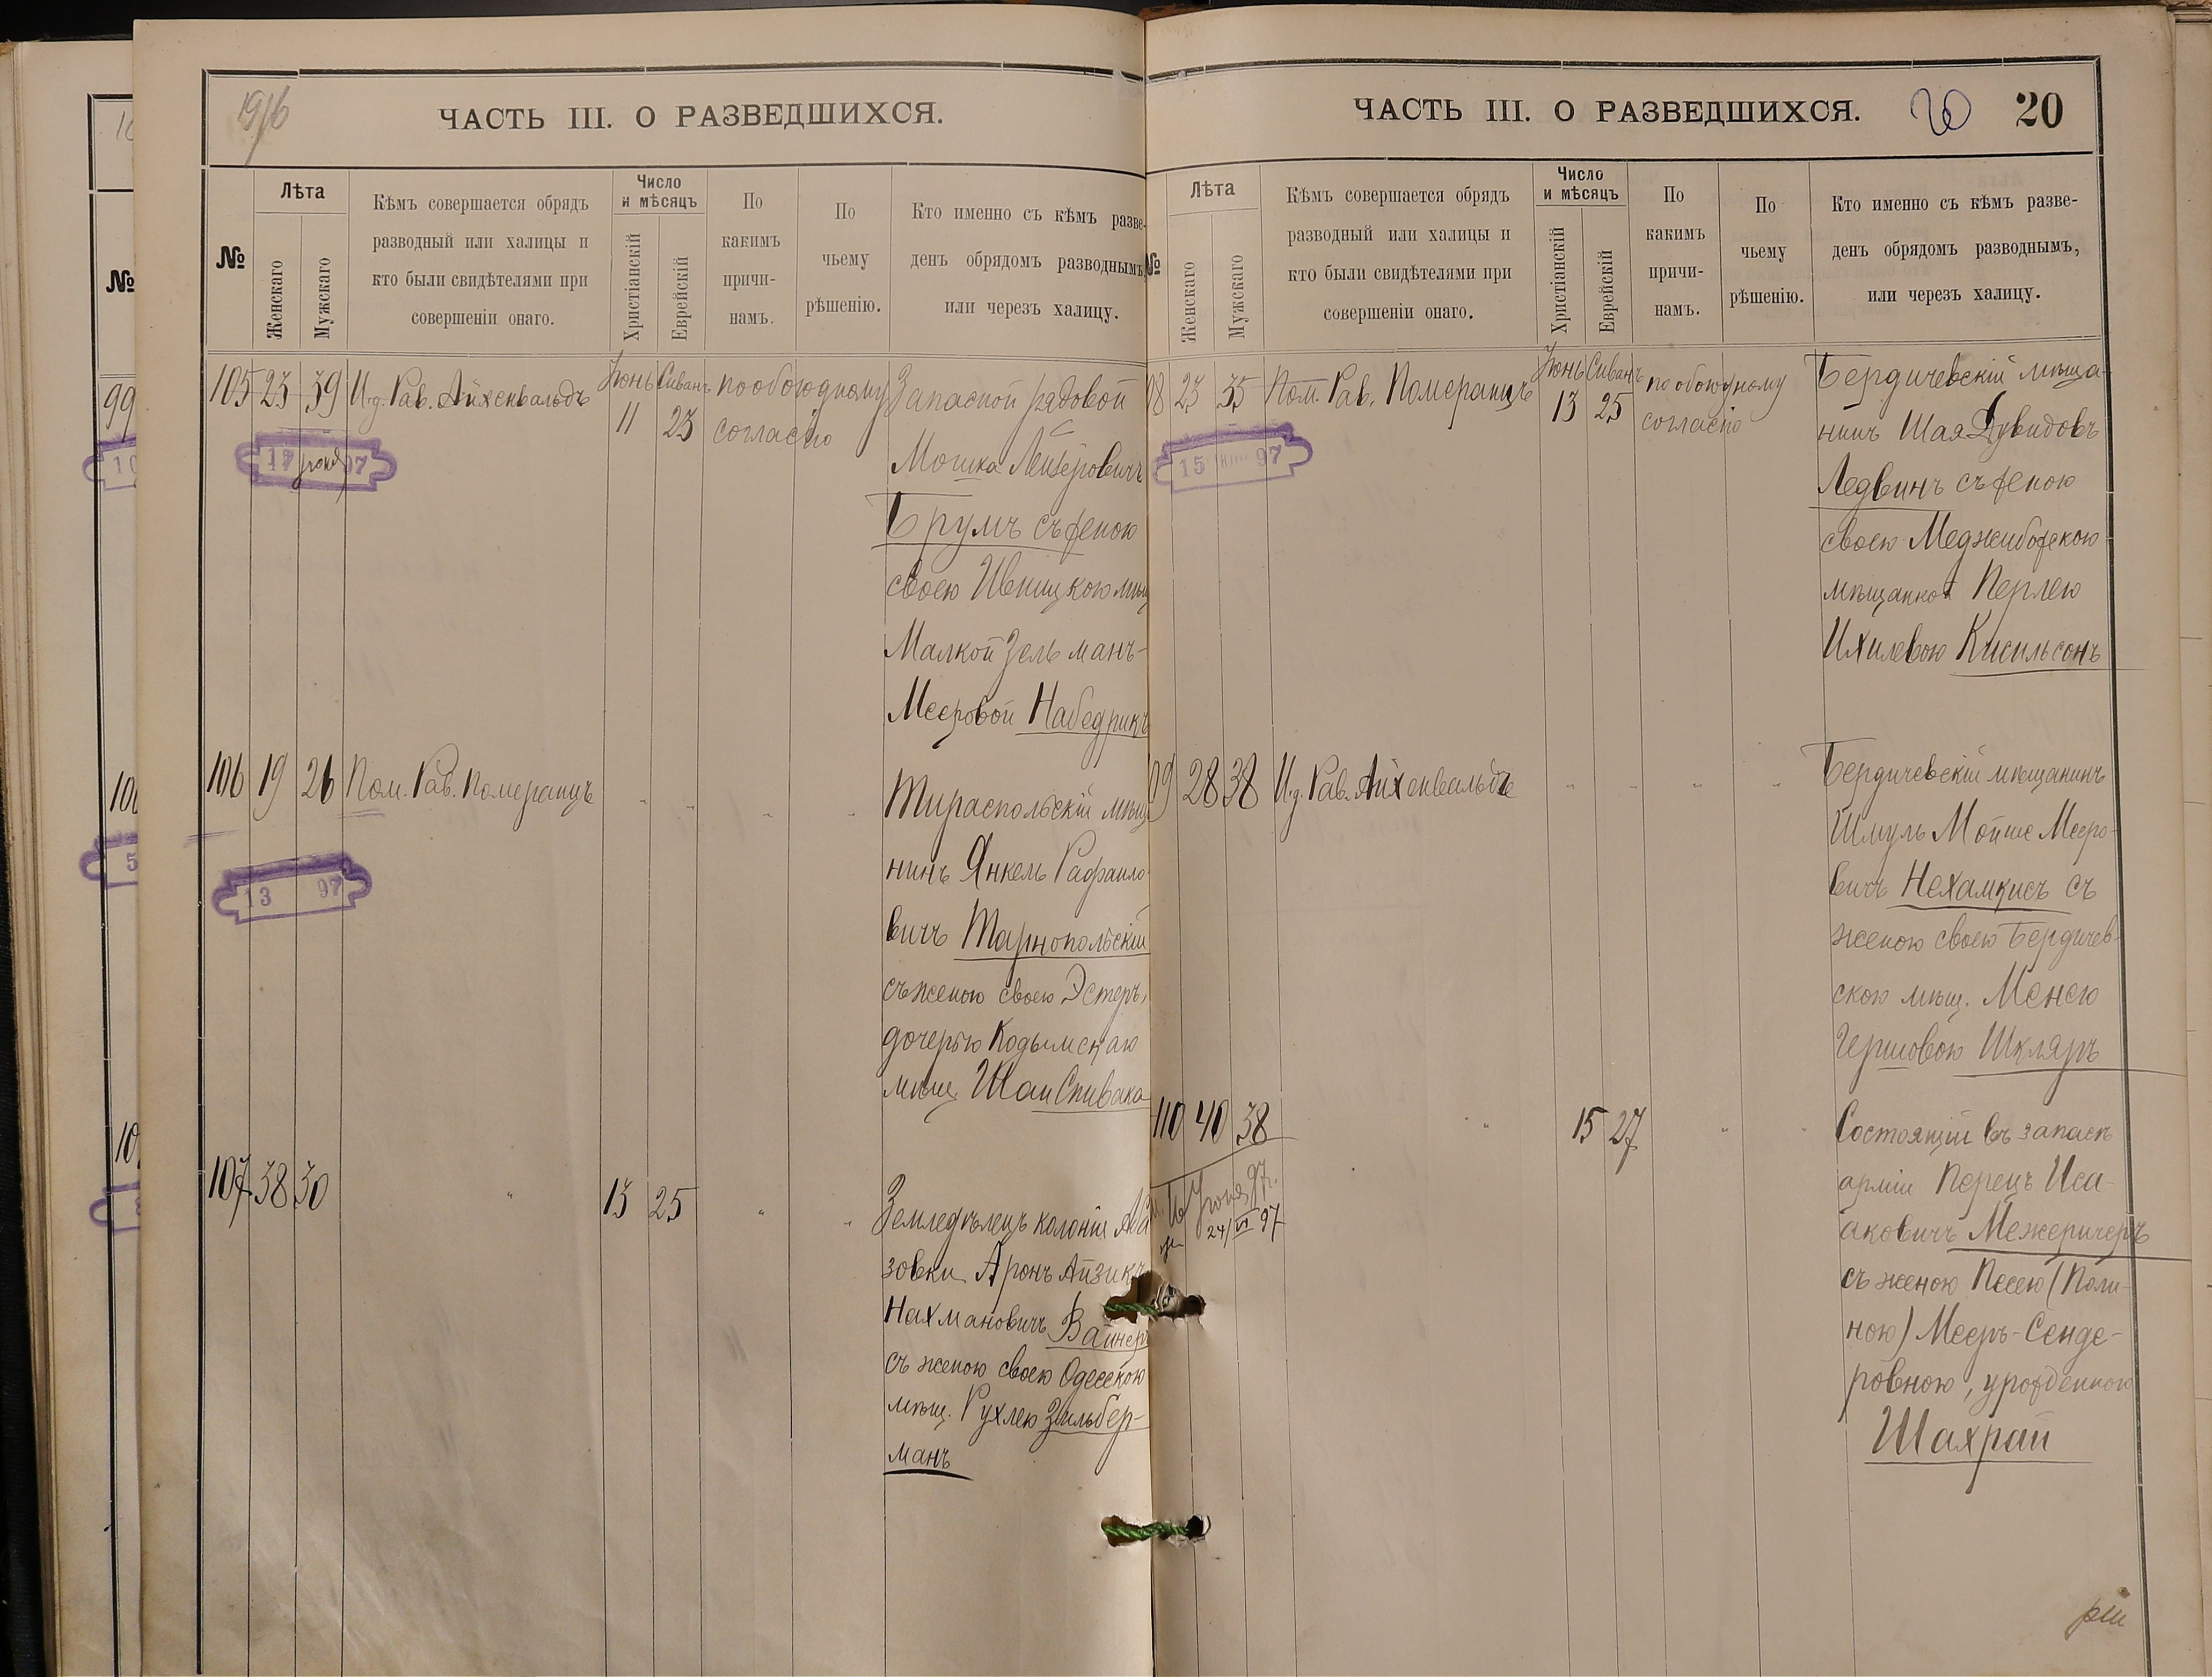 1916
ЧАСТЬ III. О РАЗВЕДШИХСЯ.
№
Лѣта
Женскаго
Мужскаго
Кѣмъ совершается обрядъ
разводный или халицы и
кто были свидѣтелями при
совершеніи онаго.
Число
и мѣсяцъ
Христіанскій
Еврейскій
По
какимъ
причи-
намъ.
По
чьему
рѣшенію.
Кто именно съ кѣмъ разве-
денъ обрядомъ разводнымъ,
или черезъ халицу.
105 23 39 И.д. Рав. Айхенвальдъ Іюнь 11 Сиванъ 23 по обоюдному согласію
Запасной рядовой
Мошка Лейзеровичъ
Брумъ съ женою
своею Ивницкою мѣщ
Малкой Зельманъ-
Мееровой Набедрикъ
17 Іюня 97
106 19 26 Пом. Рав. Померанцъ " " " "
Тираспольскій мѣща
нинъ Янкель Рафаило
вичъ Тарнопольскій
съ женою своею Эстеръ,
дочерью Кодымскаго
мѣщ. Шаи Спивака
13 97
107 38 30 " 13 25 " "
Земледѣлецъ колоніи
зовки Аронъ Айзикъ
Нахмановичъ Вайнеръ
съ женою своею Одесскою
мѣщ. Рухлею Зильбер-
манъ
ЧАСТЬ III. О РАЗВЕДШИХСЯ.
20 20
№
Лѣта
Женскаго
Мужскаго
Кѣмъ совершается обрядъ
разводный или халицы и
кто были свидѣтелями при
совершеніи онаго.
Число
и мѣсяцъ
Христіанскій
Еврейскій
По
какимъ
причи-
намъ.
По
чьему
рѣшенію.
Кто именно съ кѣмъ разве-
денъ обрядомъ разводнымъ,
или черезъ халицу.
08 23 35 Пом. Рав. Померанцъ Іюнь 13 Сиванъ 25 по обоюдному согласію
Бердичевскій мѣща-
нинъ Шая Дувидовъ
Ледвинъ съ женою
своею Меджибожскою
мѣщанкой Перлею
Ихилевою Кисильсонъ
15 97
09 28 38 И.д. Рав. Айхенвальдъ " " " "
Бердичевскій мѣщанинъ
Шмуль Мойше Мееро-
вичъ Нехамкисъ съ
женою своею Бердичев-
скою мѣщ. Менею
Гершовою Шкляръ
110 40 38 " 15 27 " "
Состоящій въ запасѣ
арміи Перецъ Иса-
аковичъ Межеричеръ
съ женою Песею (Поли-
ною) Мееръ-Сенде-
ровною, урожденною
Шахрай
16 Іюня 97 г.
24/VI 97
99